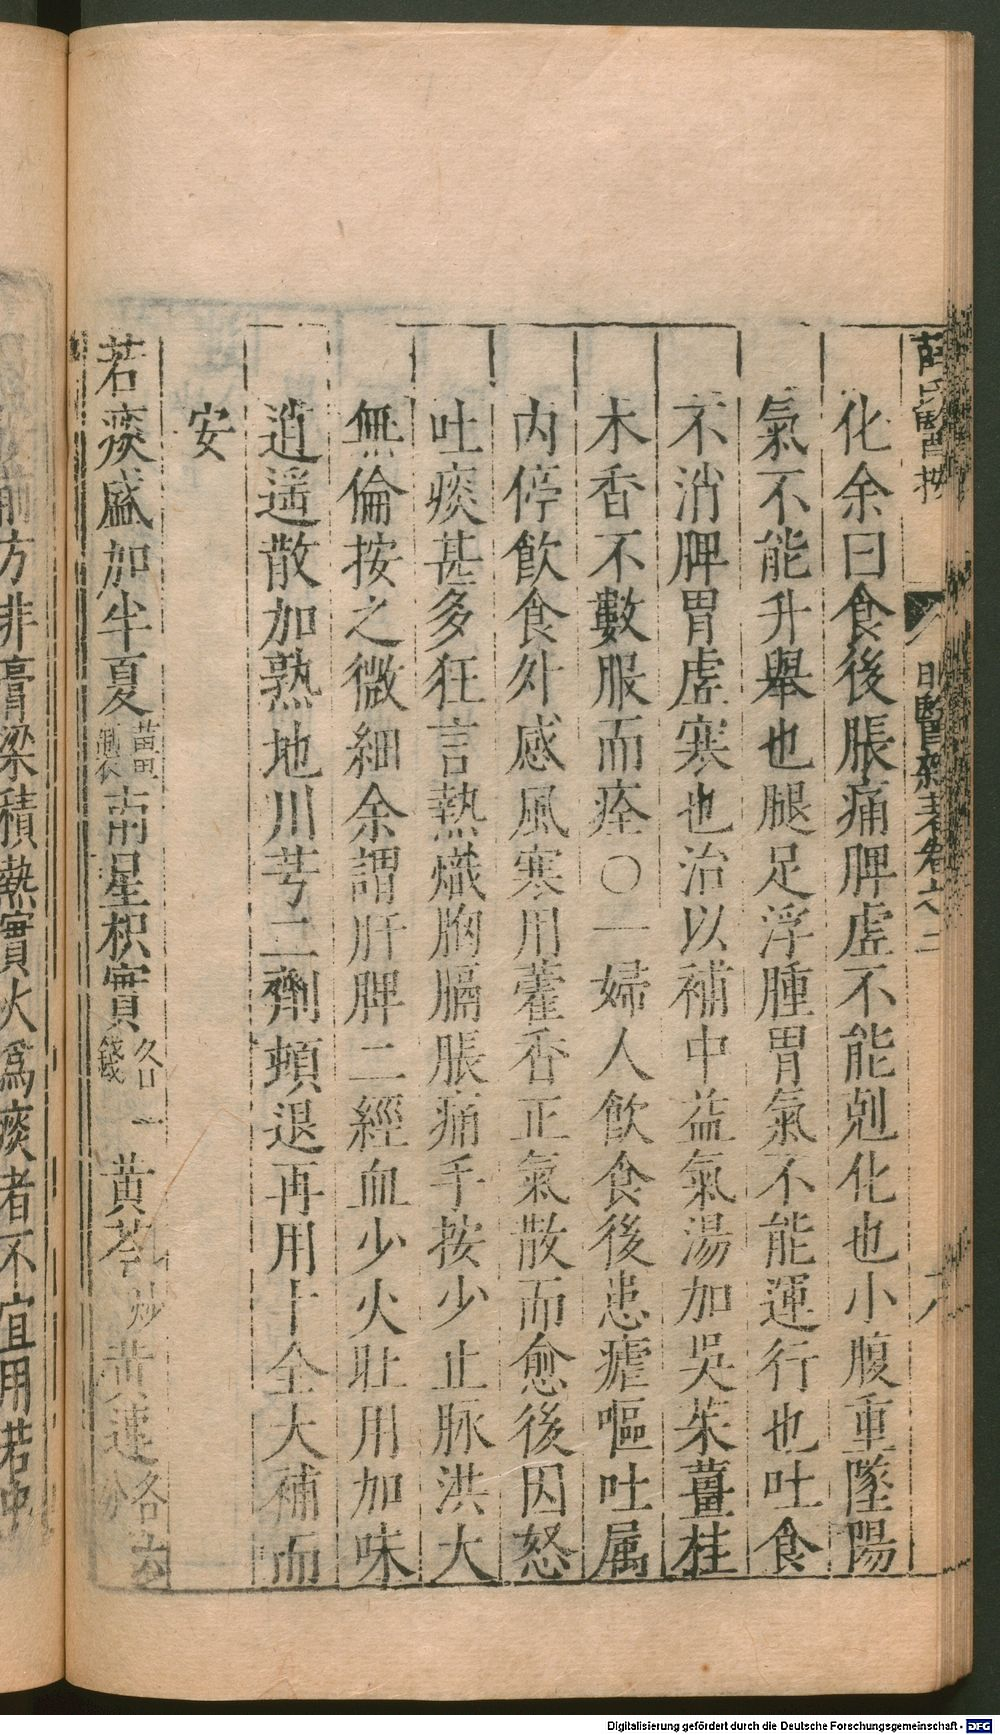 薛氏醫按 明醫雜著卷之二 六
化余曰食後脹痛脾虛不能剋化也小腹重墜陽
氣不能升舉也腿足浮腫胃氣不能運行也吐食
不消脾胃虛寒也治以補中益氣湯加吳茱薑桂
木香不數服而痊○一婦人飲食後患瘧嘔吐属
內停飲食外感風寒用藿香正氣散而愈後因怒
吐痰甚多狂言熱熾胸膈脹痛手按少止脉洪大
無倫按之微細余謂肝脾二經血少火壯用加味
逍遥散加熟地川芎二劑頓退再用十全大補而
安
若痰盛加半夏薑製南星枳實各一錢黃芩炒黃連各六分
前方非膏粱積熱實火爲痰者不宜用若中
Digitalisierung gefördert durch die Deutsche Forschungsgemeinschaft - DFG